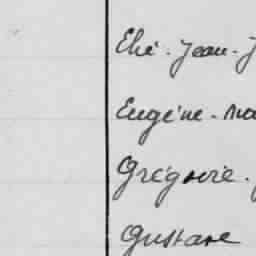 Elie - Jean - J
Eugène - Ma
Grégoire -
Gustave